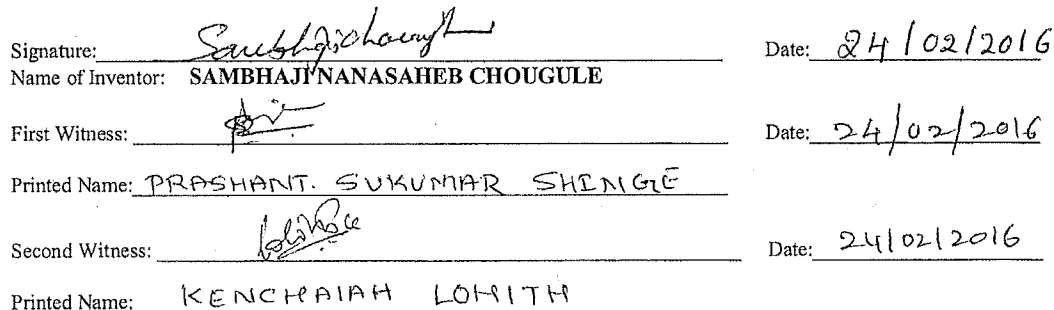 Signature: Date: 24/02/2016
Name of Inventor: SAMBHAJI NANASAHEB CHOUGULE
First Witness: Date: 24/02/2016
Printed Name: PRASHANT. SUKUMAR SHINGE
Second Witness: Date: 24/02/2016
Printed Name: KENCHAIAH LOHITH